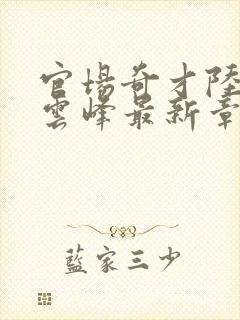 官場奇才陸
雲峰最新章
藍家三少